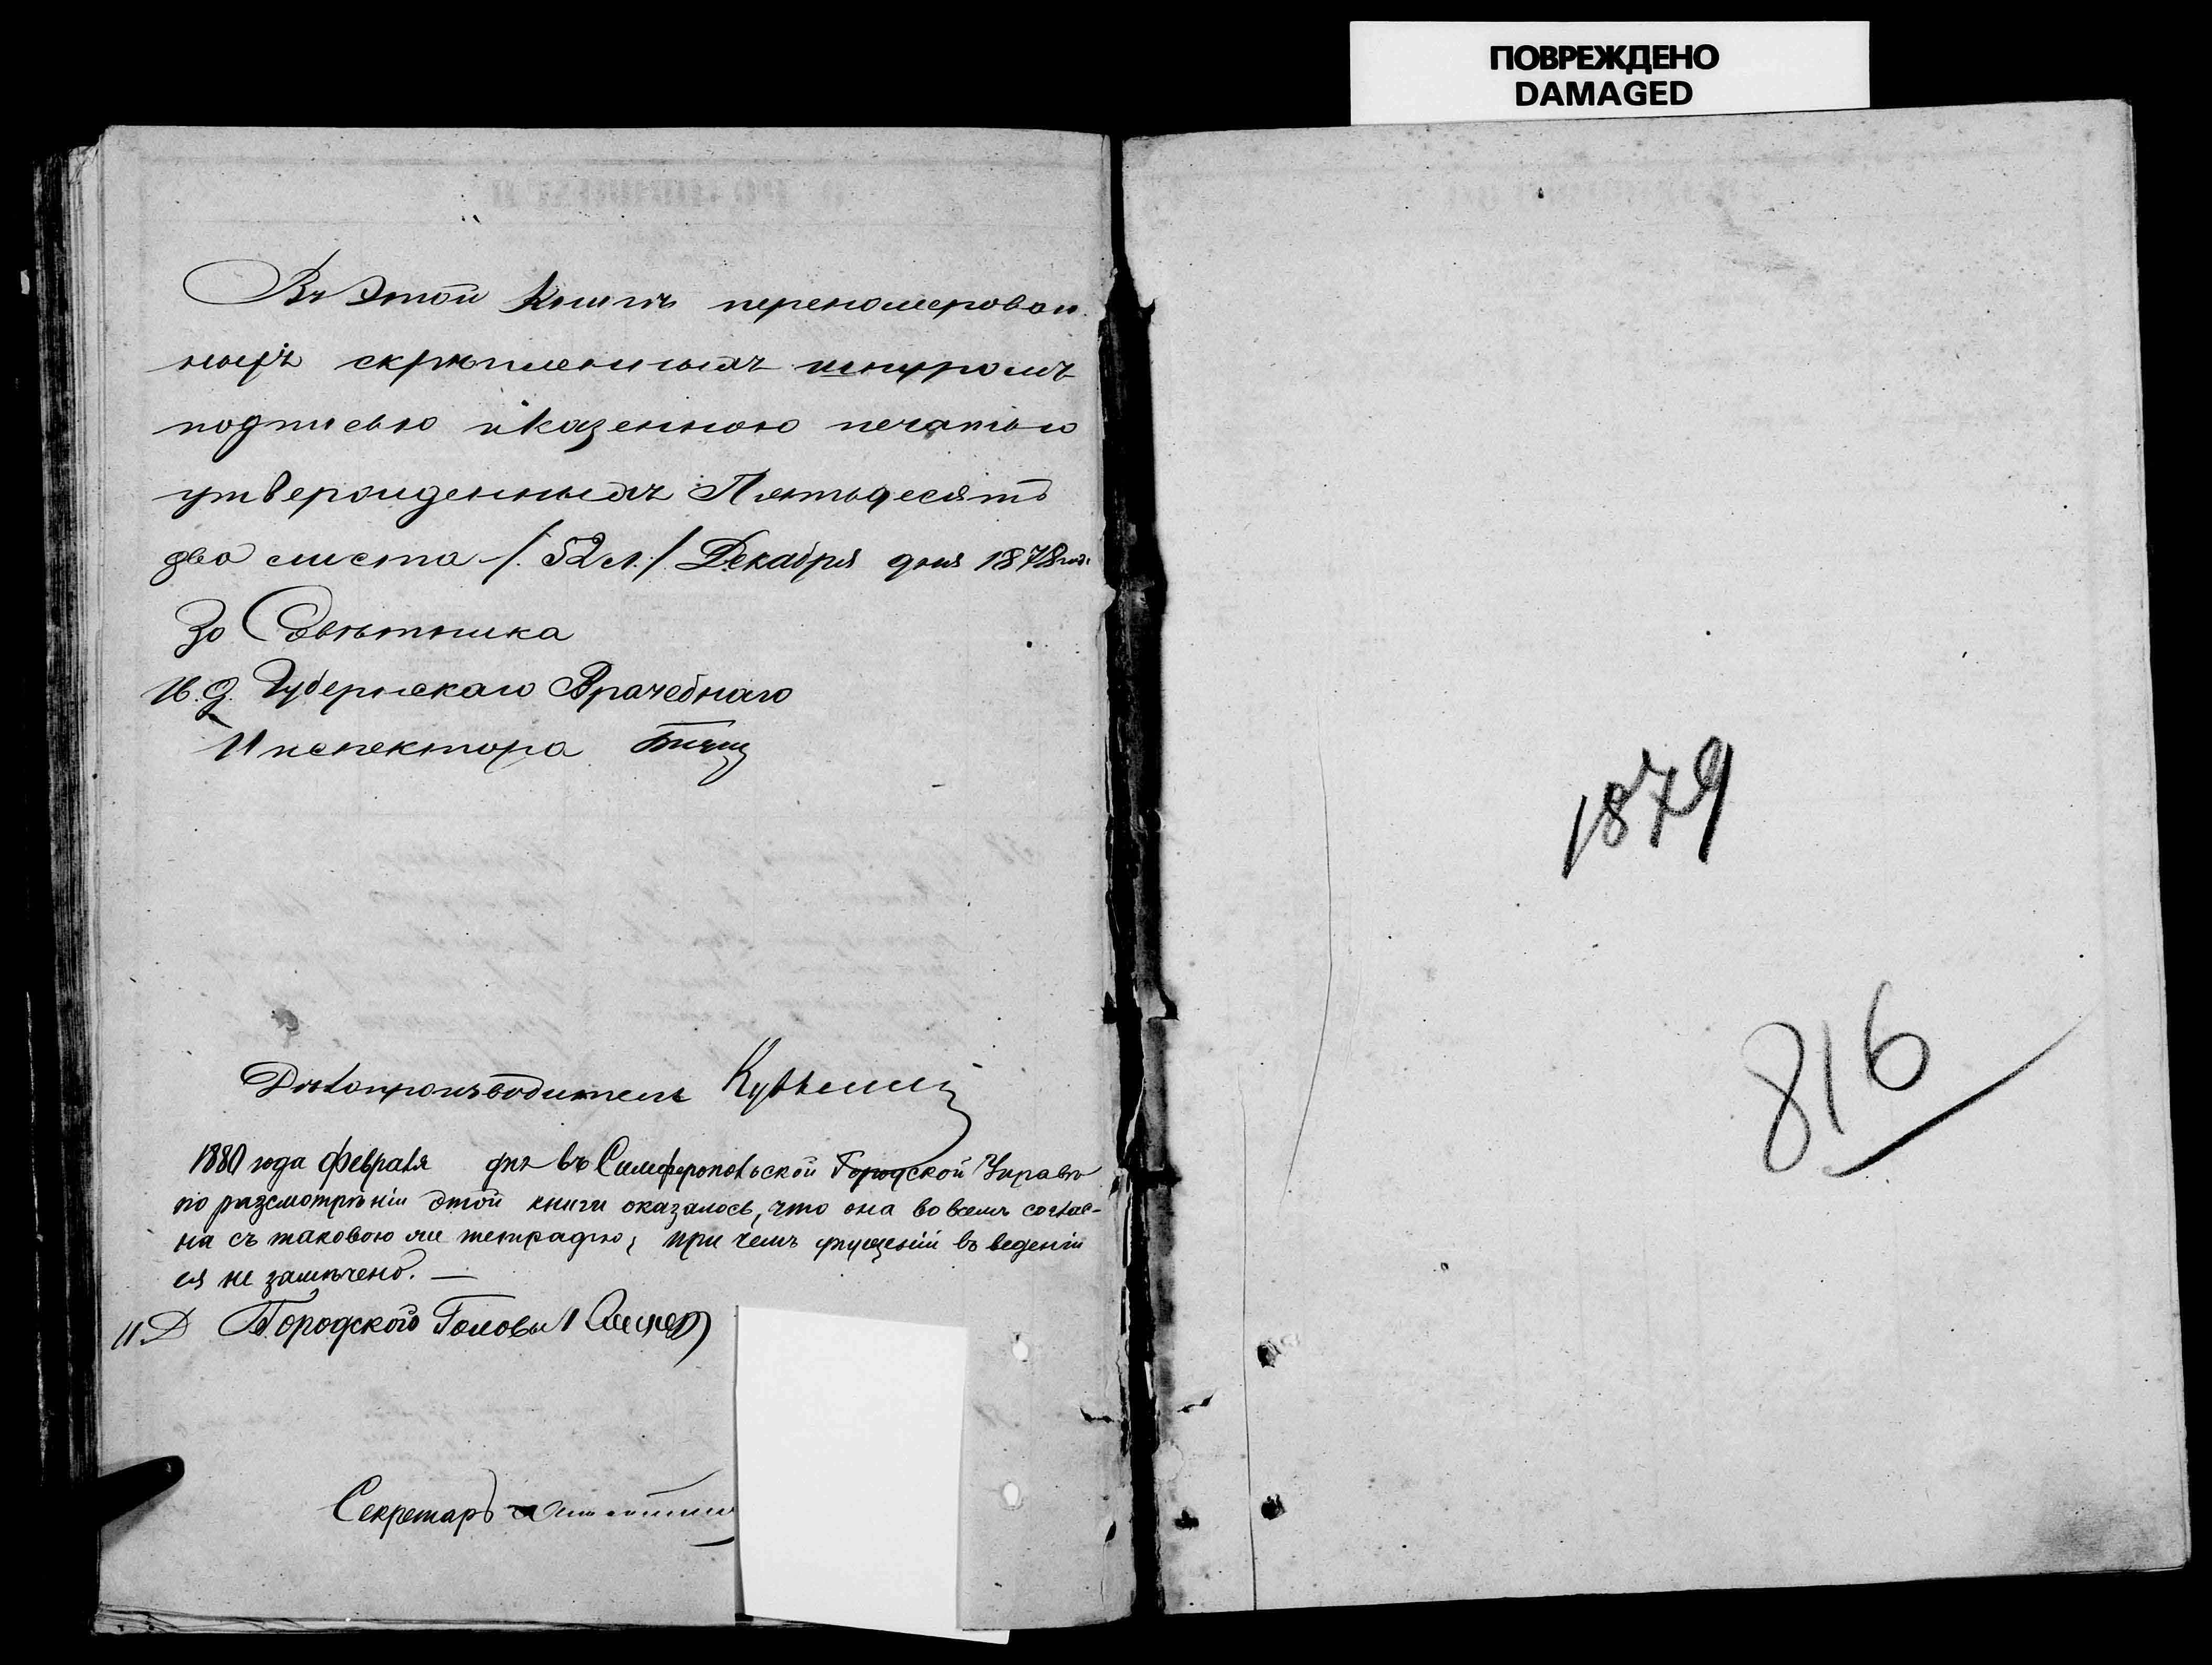 ПОВРЕЖДЕНО
DAMAGED
Въ этой книгѣ переномерован
ныхъ скрѣпленныхъ шнуромъ
подписью и казенною печатью
утвержденныхъ Пятьдесятъ
два листа /52 л./ Декабря дня 1878 год.
За Совѣтника
И. д. Губернскаго Врачебнаго
Инспектора
Дѣлопроизводитель
1880 года Февраля дня въ Симферопольской Городской Управѣ
по разсмотрѣніи этой книги оказалось, что она во всемъ соглас-
на съ таковою же тетрадью, при чемъ упущеній въ веденіи
ея не замѣчено. —
И Д Городскаго Головы
Секретарь
1879
816